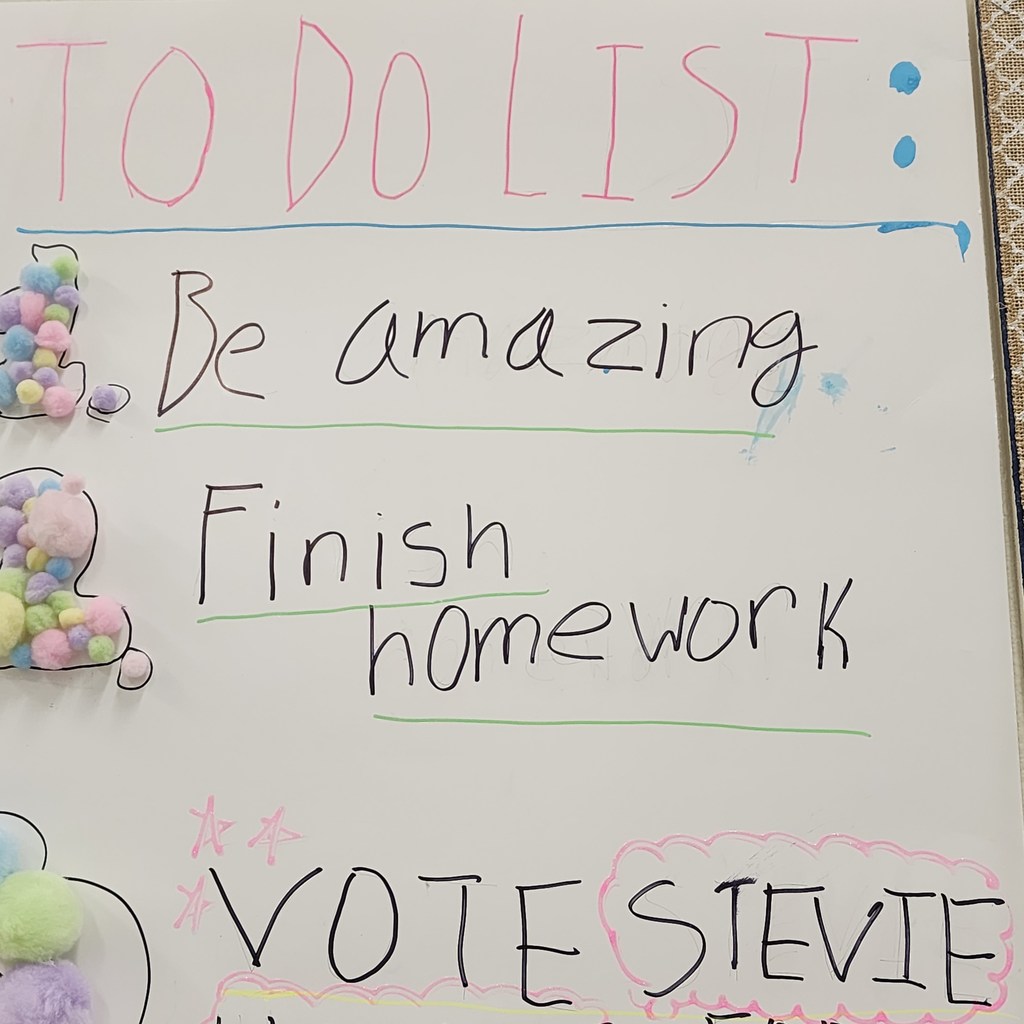 TO DO LIST:
1. Be amazing
2. Finish
homework
VOTE STEVIE